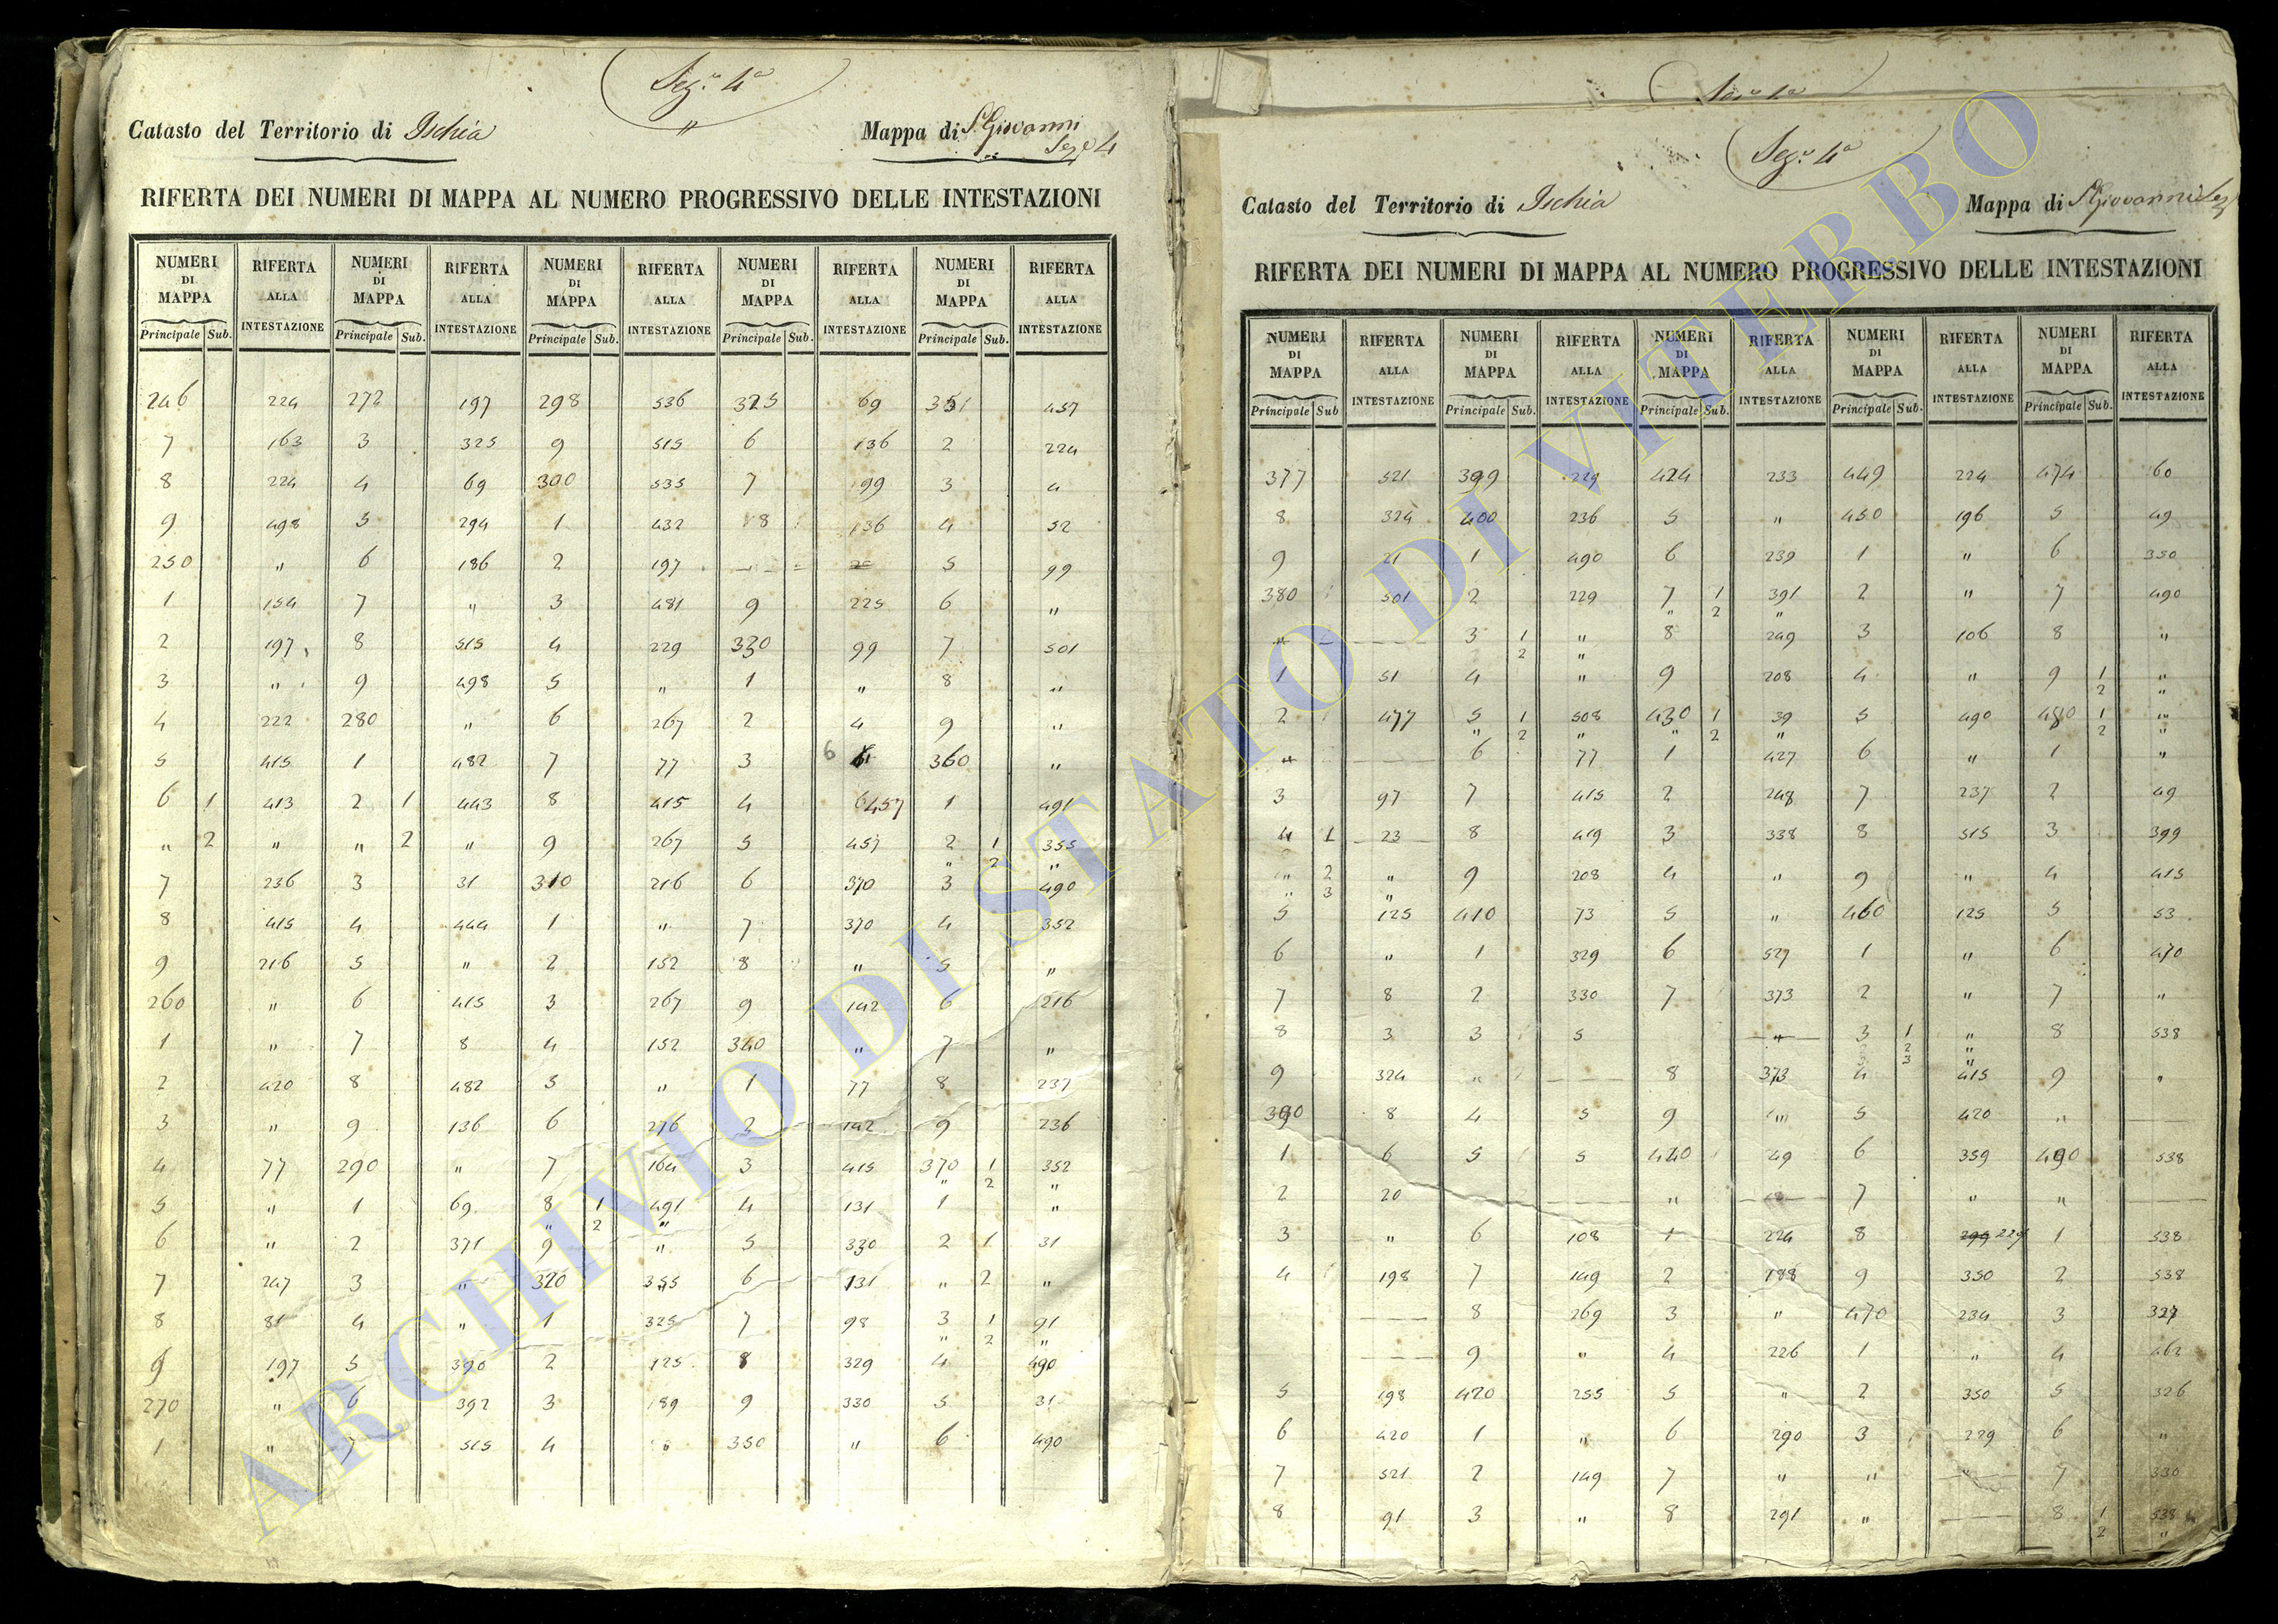 Sez.e 4a
"
Catasto del Territorio di Ischia
Mappa di S. Giovanni
Sez.e 4
RIFERTA DEI NUMERI DI MAPPA AL NUMERO PROGRESSIVO DELLE INTESTAZIONI
NUMERI DI MAPPA RIFERTA ALLA INTESTAZIONE NUMERI DI MAPPA RIFERTA ALLA INTESTAZIONE NUMERI DI MAPPA RIFERTA ALLA INTESTAZIONE NUMERI DI MAPPA RIFERTA ALLA INTESTAZIONE NUMERI DI MAPPA RIFERTA ALLA INTESTAZIONE
Principale Sub. Principale Sub. Principale Sub. Principale Sub. Principale Sub.
246 224 272 197 298 536 325 69 351 457
7 163 3 325 9 515 6 136 2 224
8 224 4 69 300 535 7 199 3 4
9 498 5 294 1 432 8 136 4 52
250 " 6 186 2 197 5 99
1 154 7 " 3 481 9 225 6 "
2 197 8 515 4 229 330 99 7 501
3 " 9 498 5 " 1 " 8 "
4 222 280 " 6 267 2 4 9 "
5 415 1 482 7 77 3 6 360 "
6 1 413 2 1 443 8 415 4 457 1 491
" 2 " " 2 " 9 267 5 457 2 1 355
" 2 "
7 236 3 31 310 216 6 370 3 490
8 415 4 444 1 " 7 370 4 352
9 216 5 " 2 152 8 " 5 "
260 " 6 415 3 267 9 142 6 216
1 " 7 8 4 152 340 " 7 "
2 420 8 482 5 " 1 77 8 237
3 " 9 136 6 276 2 142 9 236
4 77 290 " 7 164 3 415 370 1 352
" 2 "
5 " 1 69 8 1 491 4 131 1 "
" 2 "
6 " 2 371 9 " 5 330 2 1 31
7 247 3 " 320 355 6 131 " 2 "
8 81 4 " 1 325 7 98 3 1 91
" 2 "
9 197 5 390 2 125 8 329 4 490
270 " 6 392 3 189 9 330 5 31
1 " 7 515 4 " 350 " 6 490
Sez.e 4a
Catasto del Territorio di Ischia
Mappa di S. Giovanni Sez
RIFERTA DEI NUMERI DI MAPPA AL NUMERO PROGRESSIVO DELLE INTESTAZIONI
NUMERI DI MAPPA RIFERTA ALLA INTESTAZIONE NUMERI DI MAPPA RIFERTA ALLA INTESTAZIONE NUMERI DI MAPPA RIFERTA ALLA INTESTAZIONE NUMERI DI MAPPA RIFERTA ALLA INTESTAZIONE NUMERI DI MAPPA RIFERTA ALLA INTESTAZIONE
Principale Sub Principale Sub. Principale Sub. Principale Sub. Principale Sub.
377 521 399 229 424 233 449 224 474 60
8 324 400 236 5 " 450 196 5 49
9 21 1 490 6 239 1 " 6 350
380 501 2 229 7 1 391 2 " 7 490
" 2 "
" 3 1 " 8 249 3 106 8 "
2 "
1 51 4 " 9 208 4 " 9 1 "
2 "
2 477 5 1 508 430 1 39 5 490 480 1 "
" 2 " " 2 " 2 "
" 6 77 1 427 6 " 1 "
3 97 7 415 2 248 7 237 2 49
4 1 23 8 419 3 338 8 515 3 399
" 2 " 9 208 4 " 9 " 4 415
" 3 "
5 125 410 73 5 " 460 125 5 53
6 " 1 329 6 527 1 " 6 470
7 8 2 330 7 373 2 " 7 "
8 3 3 5 " 3 1 " 8 538
2 "
3 "
9 324 " 8 373 4 415 9 "
390 8 4 5 9 " 5 420 "
1 6 5 5 440 49 6 359 490 538
2 20 " 7 " "
3 " 6 108 1 224 8 229 1 538
4 198 7 149 2 188 9 350 2 538
8 269 3 " 470 234 3 327
9 " 4 226 1 " 4 462
5 198 420 255 5 " 2 350 5 326
6 420 1 " 6 290 3 229 6 "
7 521 2 149 7 " " 7 330
8 91 3 " 8 291 " 8 1 538
2 "
ARCHIVIO DI STATO DI VITERBO